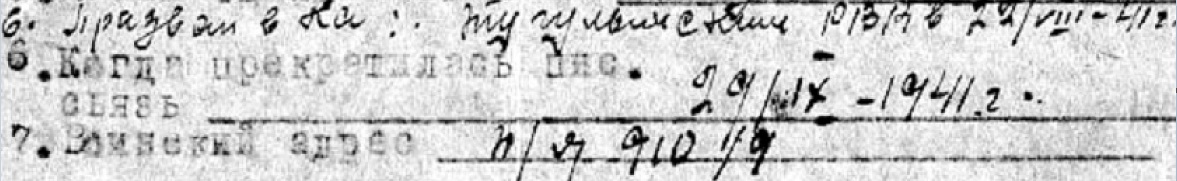 6. Призван в Ка : Тугулымским РВК в 22/VIII-41г.
6. Когда прекратилась пис.
связь 29/IX -1941.г.
7. Воинский адрес п/я 910 1/9